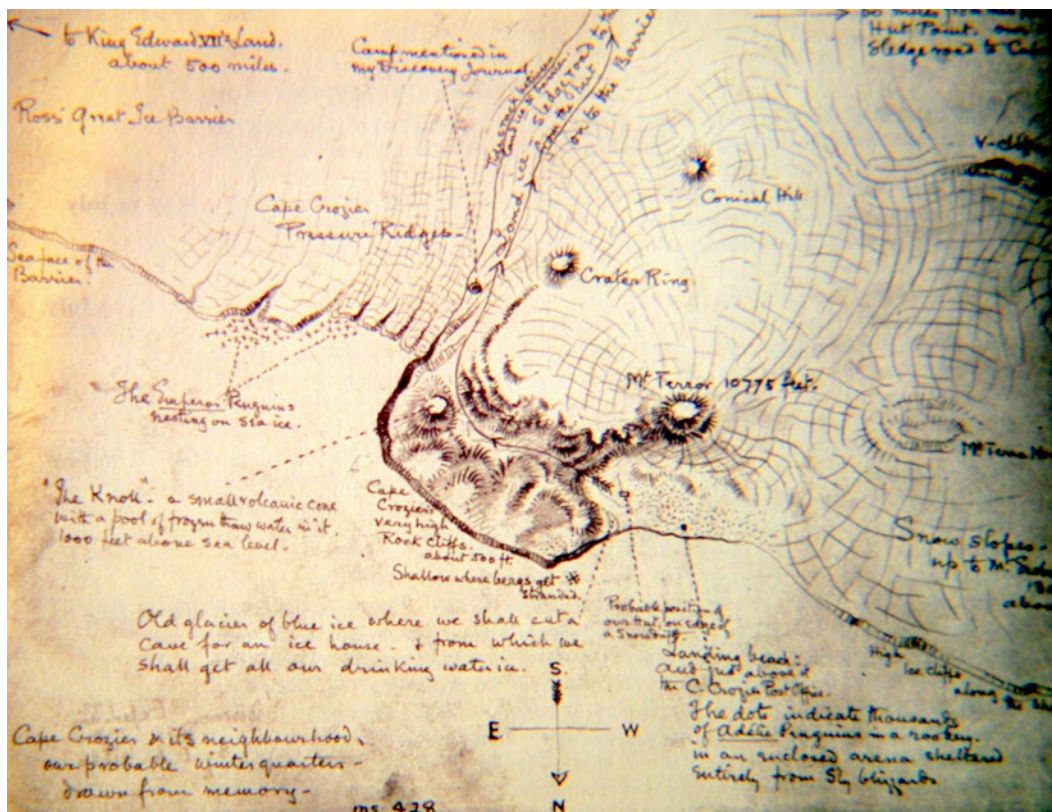 to King Edward VII's Land.
about 500 miles.
Ross' Great Ice Barrier
Camp mentioned in
my Discovery Journal
land ice &
Sledge road to the
Land ice from the hut
on to the Barrier
Hut Point. our
Sledge road to
V-cliffs
Conical Hill
Cape Crozier
Pressure Ridges
Crater Ring.
Sea face of the
Barrier.
Mt Terror 10775 feet.
The Emperor Penguins
nesting on sea ice.
Mt Terra
"The Knoll" - a small volcanic cone
with a pool of frozen thaw water in it.
1000 feet above sea level.
Cape
Crozier
very high
Rock cliffs.
about 500 ft.
Shallow where bergs get
stranded.
Snow slopes
up to Mt
Old glacier of blue ice where we shall cut a
cave for an ice house. & from which we
shall get all our drinking water ice.
Probable position of
our Hut, on edge of
a snowdrift
Landing beach:
and just above it
the C. Crozier Post Office.
The dots indicate thousands
of Adélie Penguins in a rookery.
in an enclosed arena sheltered
entirely from Sly blizzards
High
Ice cliffs
along the
S.
E W
N
Cape Crozier & its neighbourhood,
our probable winter quarters -
drawn from memory -
ms 428